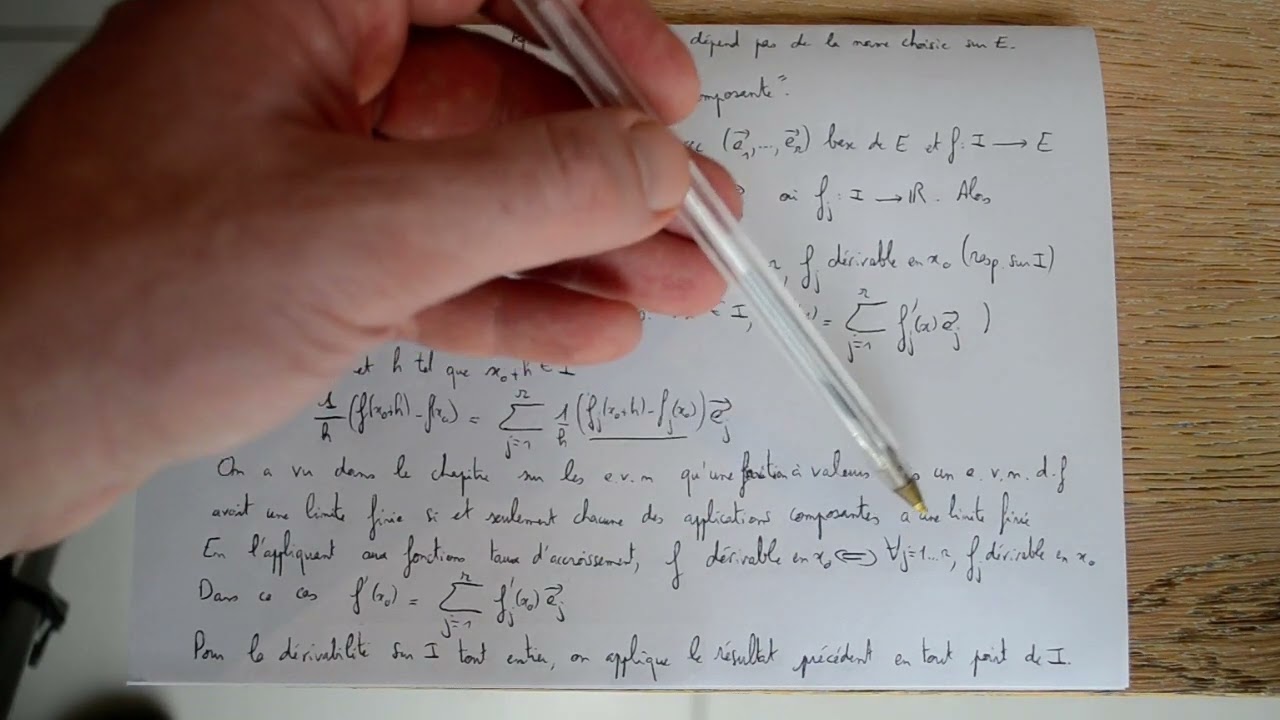 dépend pas de la norme choisie sur E.
composante".
(e⃗₁,...,e⃗ₙ) base de E et f: I → E
où fⱼ: I → ℝ. Alors
fⱼ dérivable en x₀ (resp. sur I)
∈ I, = ∑ⱼ₌₁ⁿ fⱼ'(x) e⃗ⱼ )
et h tel que x₀+h ∈ I
1/h (f(x₀+h) - f(x₀)) = ∑ⱼ₌₁ⁿ 1/h (fⱼ(x₀+h) - fⱼ(x₀)) e⃗ⱼ
On a vu dans le chapitre sur les e.v.n qu'une fonction à valeurs un e.v.n. d.f
avait une limite finie si et seulement chacune des applications composantes a une limite finie
En l'appliquant aux fonctions taux d'accroissement, f dérivable en x₀ ⟺ ∀j=1...n, fⱼ dérivable en x₀
Dans ce cas f'(x₀) = ∑ⱼ₌₁ⁿ fⱼ'(x₀) e⃗ⱼ
Pour la dérivabilité sur I tout entier, on applique le résultat précédent en tout point de I.